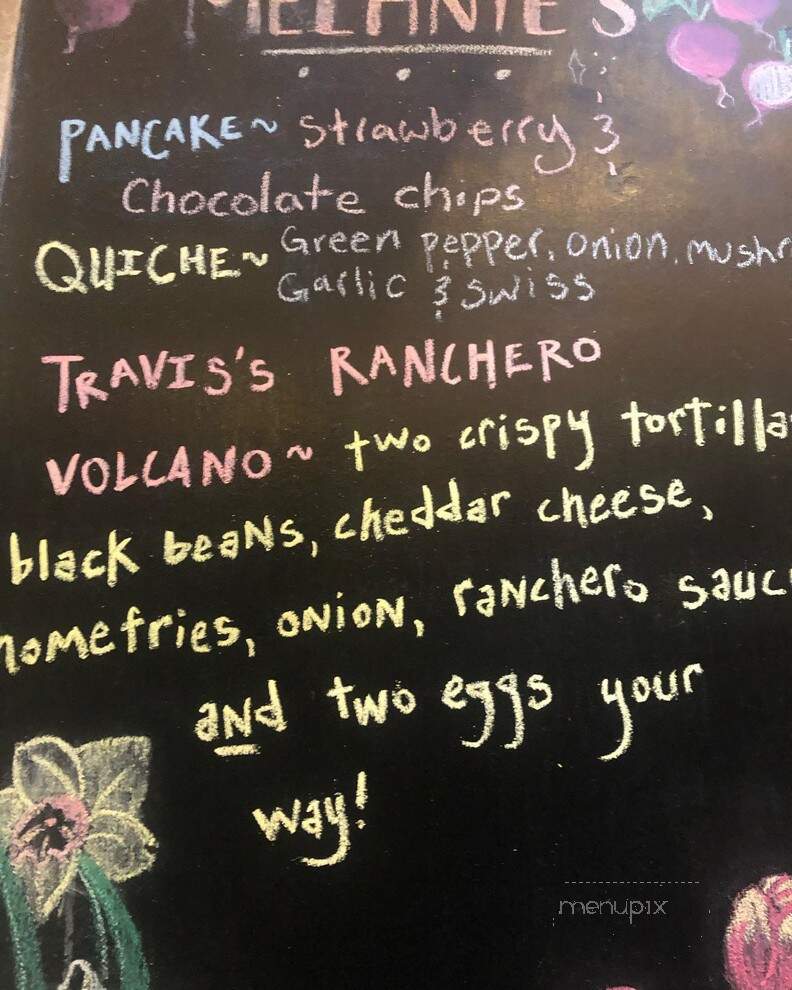 MELANIE'S
PANCAKE~ strawberry &
Chocolate chips
QUICHE~ Green pepper, onion, mushr
Garlic & swiss
TRAVIS'S RANCHERO
VOLCANO~ two crispy tortilla
black beans, cheddar cheese,
homefries, onion, ranchero sauc
and two eggs your
way!
menupix